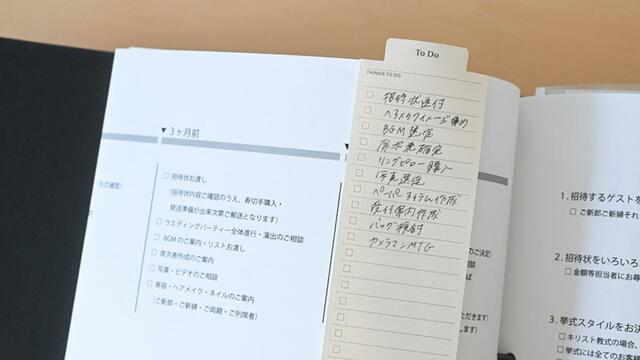 形式確認
▼3ヶ月前
□ 招待状お渡し
(招待状内容ご確認のうえ、寿切手購入・
発送準備が出来次第ご郵送となります)
□ ウエディングパーティー全体進行・演出のご相談
□ BGMのご案内・リストお渡し
□ 席次表作成のご案内
□ 写真・ビデオのご相談
□ 美容・ヘアメイク・ネイルのご案内
(ご新郎・ご新婦・ご両親・ご列席者)
To Do
THINGS TO DO
□ 招待状送付
□ ヘアメイクイメージ
□ BGM選定
□ 席次表確定
□ リングピロー購入
□ 写真選定
□ ペーパーアイテム作成
□ 受付案内作成
□ バッグ検討
□ カメラマンMTG
のご決定)
ただきます)
ります)
1. 招待するゲストを
□ ご新郎ご新婦それ
2. 招待状をいろいろ
□ 金額等担当者にお尋
3. 挙式スタイルをお決
□ キリスト教式の場合、
□ 挙式には全てのお客